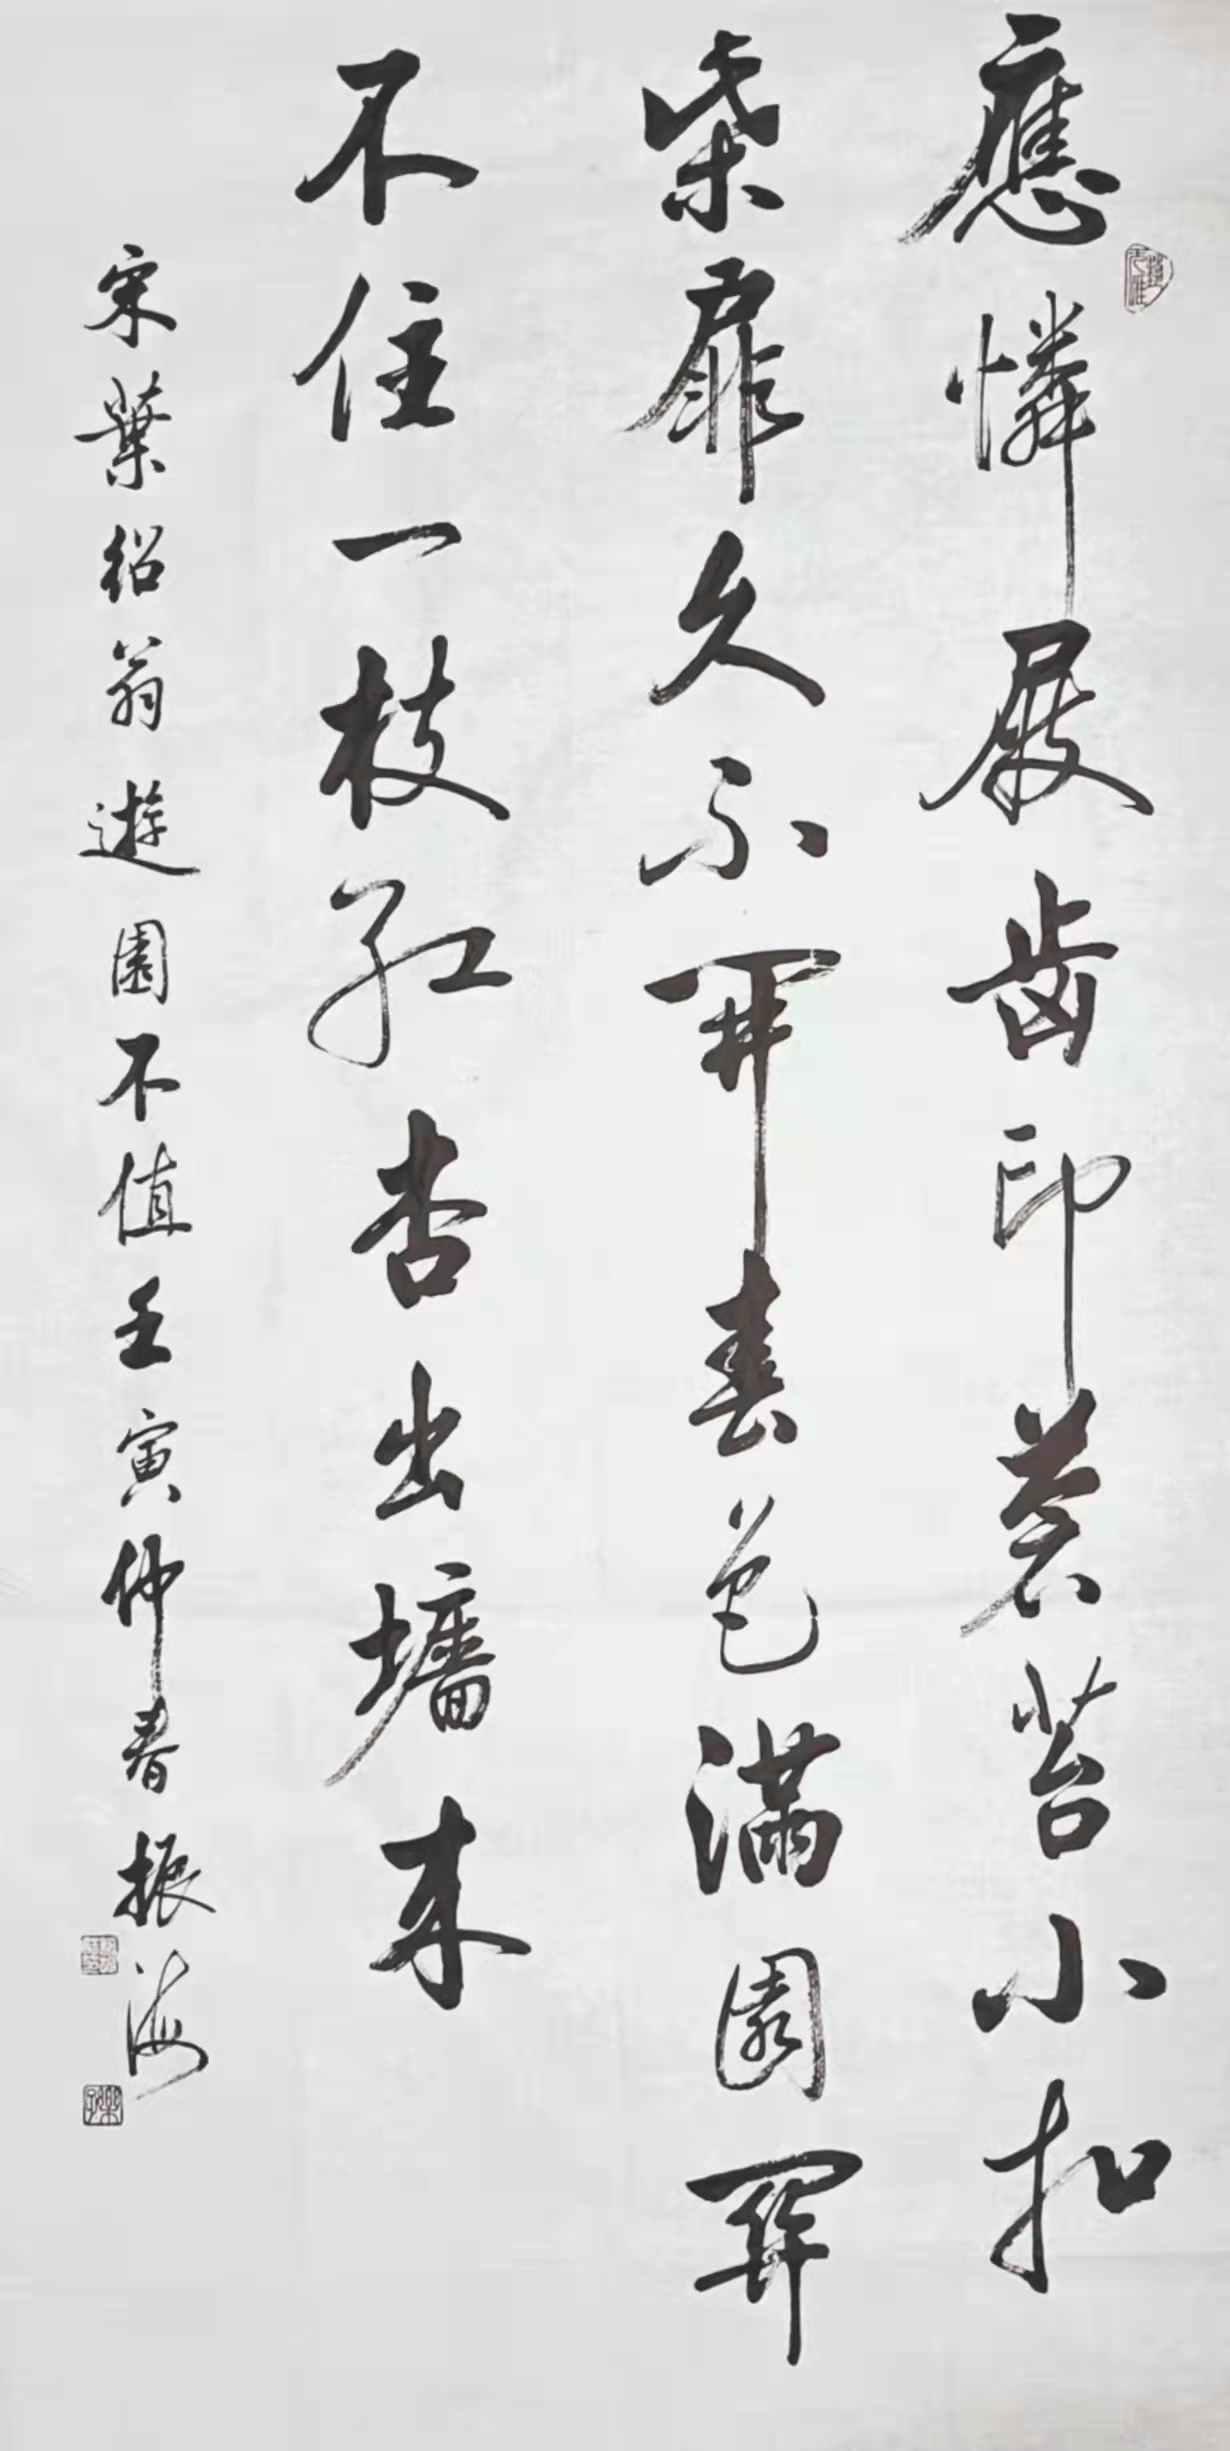 應憐屐齒印蒼苔小扣
柴扉久不開春色滿園關
不住一枝紅杏出墻來
宋葉紹翁遊園不值壬寅仲春振海